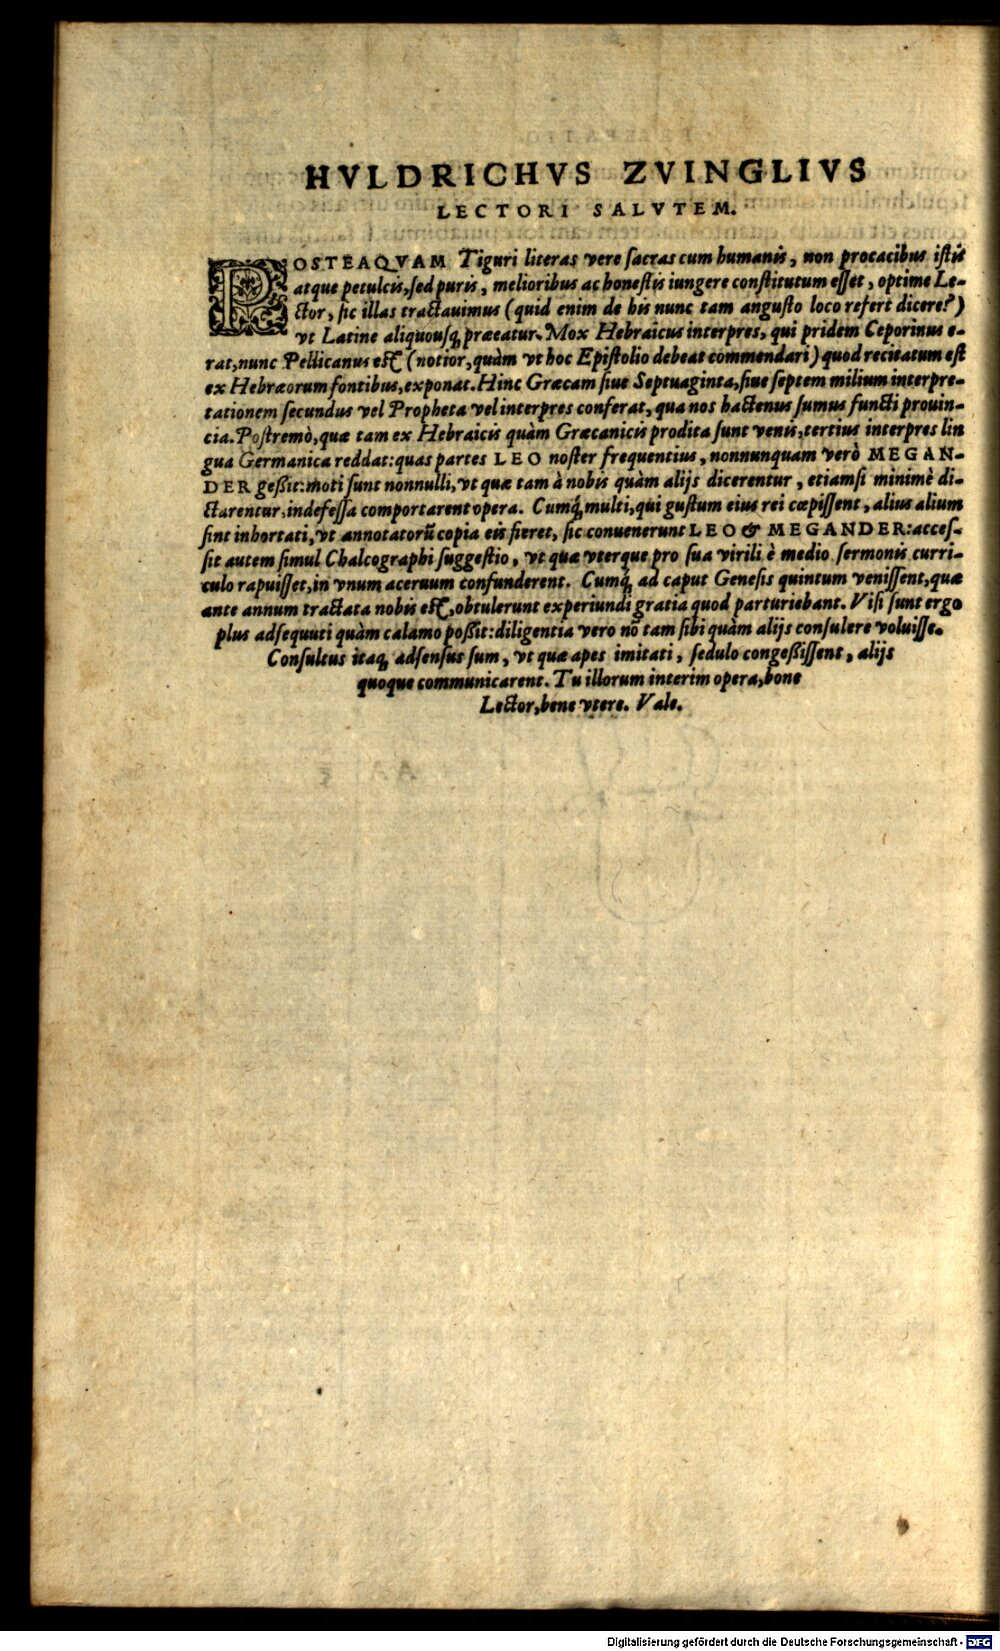 HVLDRICHVS ZVINGLIVS
LECTORI SALVTEM.
POSTEAQVAM Tiguri literas vere sacras cum humanis, non procacibus istis
atque petulcis, sed puris, melioribus ac honestis iungere constitutum esset, optime Le-
ctor, sic illas tractauimus (quid enim de his nunc tam angusto loco refert dicere?)
vt Latine aliquousq; præeatur. Mox Hebraicus interpres, qui pridem Ceporinus e-
rat, nunc Pellicanus est (notior, quàm vt hoc Epistolio debeat commendari) quod recitatum est
ex Hebræorum fontibus, exponat. Hinc Græcam siue Septuaginta, siue septem milium interpre-
tationem secundus vel Propheta vel interpres conferat, qua nos hactenus sumus functi prouin-
cia. Postremò, quæ tam ex Hebraicis quàm Græcanicis prodita sunt venis, tertius interpres lin
gua Germanica reddat: quas partes LEO noster frequentius, nonnunquam verò MEGAN-
DER geßit: moti sunt nonnulli, vt quæ tam à nobis quàm alijs dicerentur, etiamsi minimè di-
ctarentur, indefessa comportarent opera. Cumq́; multi, qui gustum eius rei cœpissent, alius alium
sint inhortati, vt annotatorũ copia eis fieret, sic conuenerunt LEO & MEGANDER: acces-
sit autem simul Chalcographi suggestio, vt quæ vterque pro sua virili è medio sermonis curri-
culo rapuisset, in vnum aceruum confunderent. Cumq́; ad caput Genesis quintum venissent, quæ
ante annum tractata nobis est, obtulerunt experiundi gratia quod parturiebant. Visi sunt ergo
plus adsequuti quàm calamo poßit: diligentia vero nō tam sibi quàm alijs consulere voluisse.
Consultus itaq; adsensus sum, vt quæ apes imitati, sedulo congeßissent, alijs
quoque communicarent. Tu illorum interim opera, bone
Lector, bene vtere. Vale.
Digitalisierung gefördert durch die Deutsche Forschungsgemeinschaft - DFG